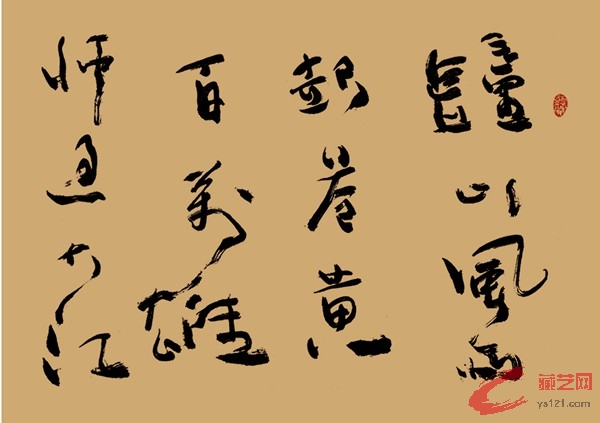 鍾山風雨
起蒼黃
百萬雄
師過大江
藏艺网
ys121.com